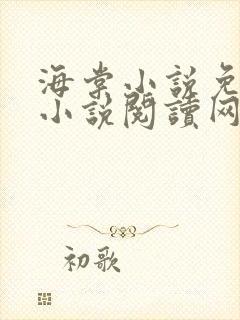 海棠小说免
小说閱讀网
初歌